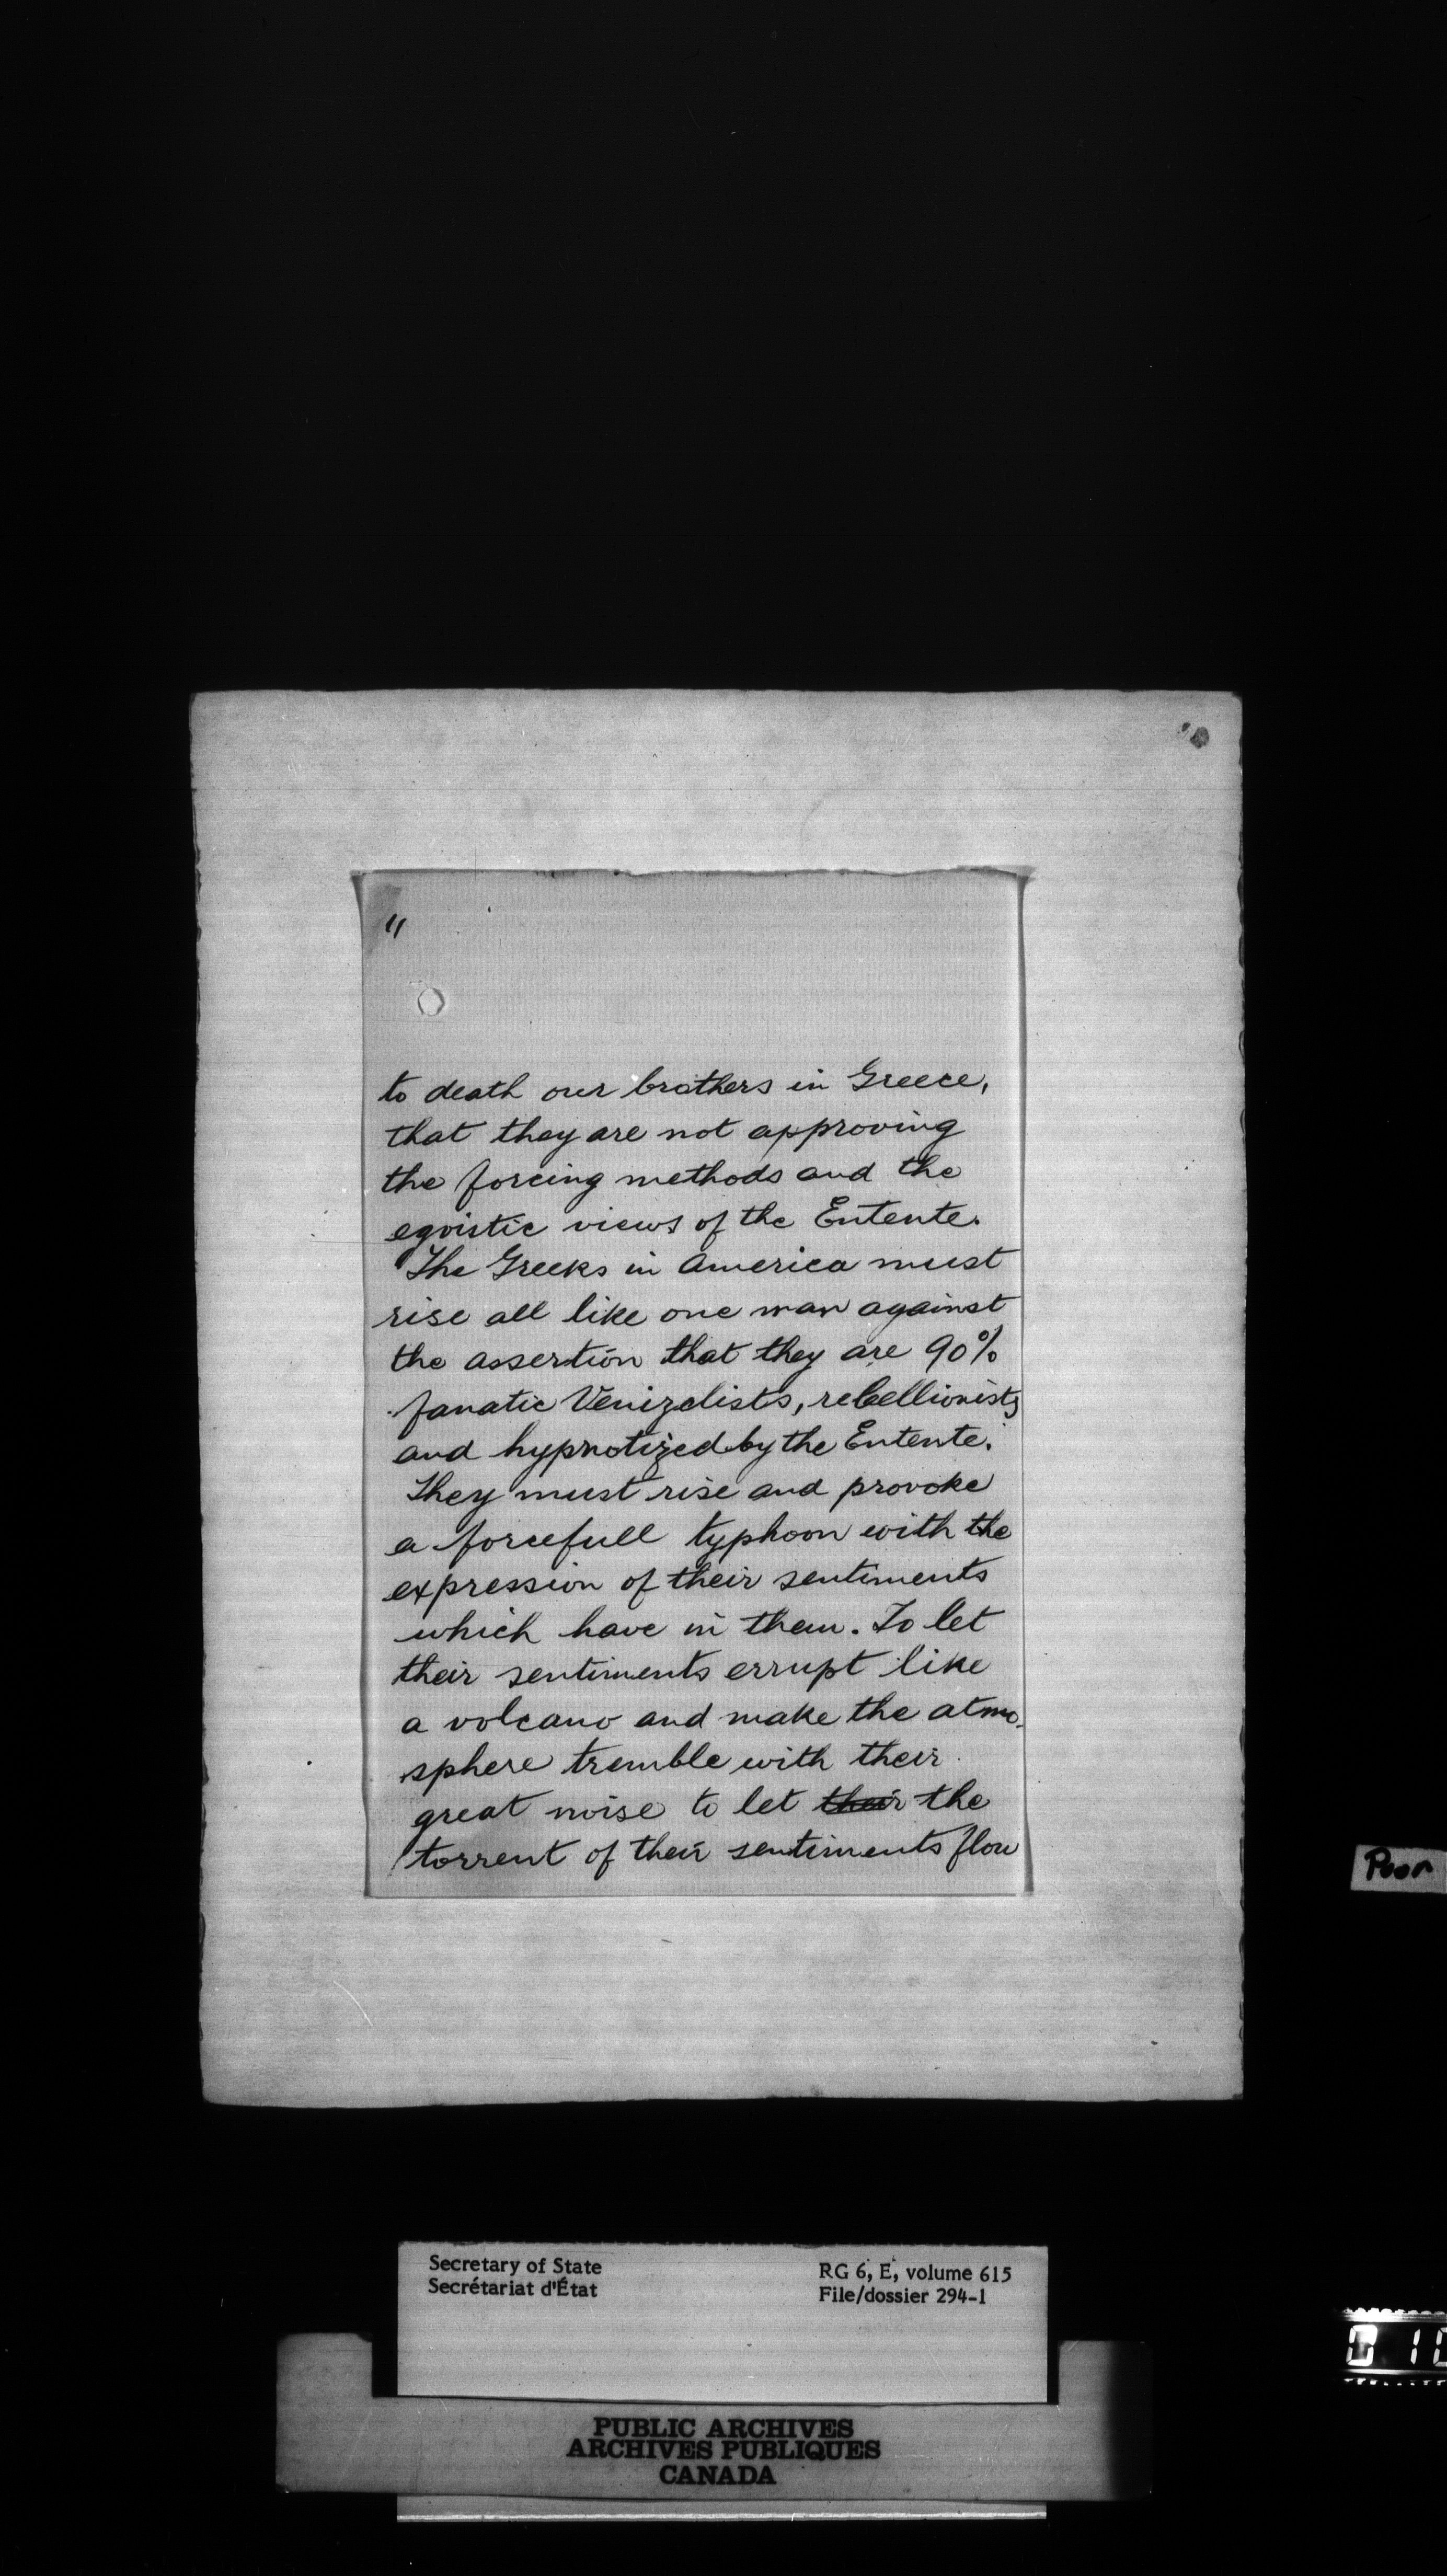 "
to death our brothers in Greece,
that they are not approving
the forcing methods and the
egoistic views of the Entente.
The Greeks in America must
rise all like one man against
the assertion that they are 90%
fanatic Venizelists, rebellionists
and hypnotized by the Entente.
They must rise and provoke
a forcefull typhoon with the
expression of their sentiments
which have in them. To let
their sentiments errupt like
a volcano and make the atmo-
sphere tremble with their
great noise to let their the
torrent of their sentiments flow
Poor
Secretary of State
Secrétariat d'État
RG 6, E, volume 615
File/dossier 294-1
PUBLIC ARCHIVES
ARCHIVES PUBLIQUES
CANADA